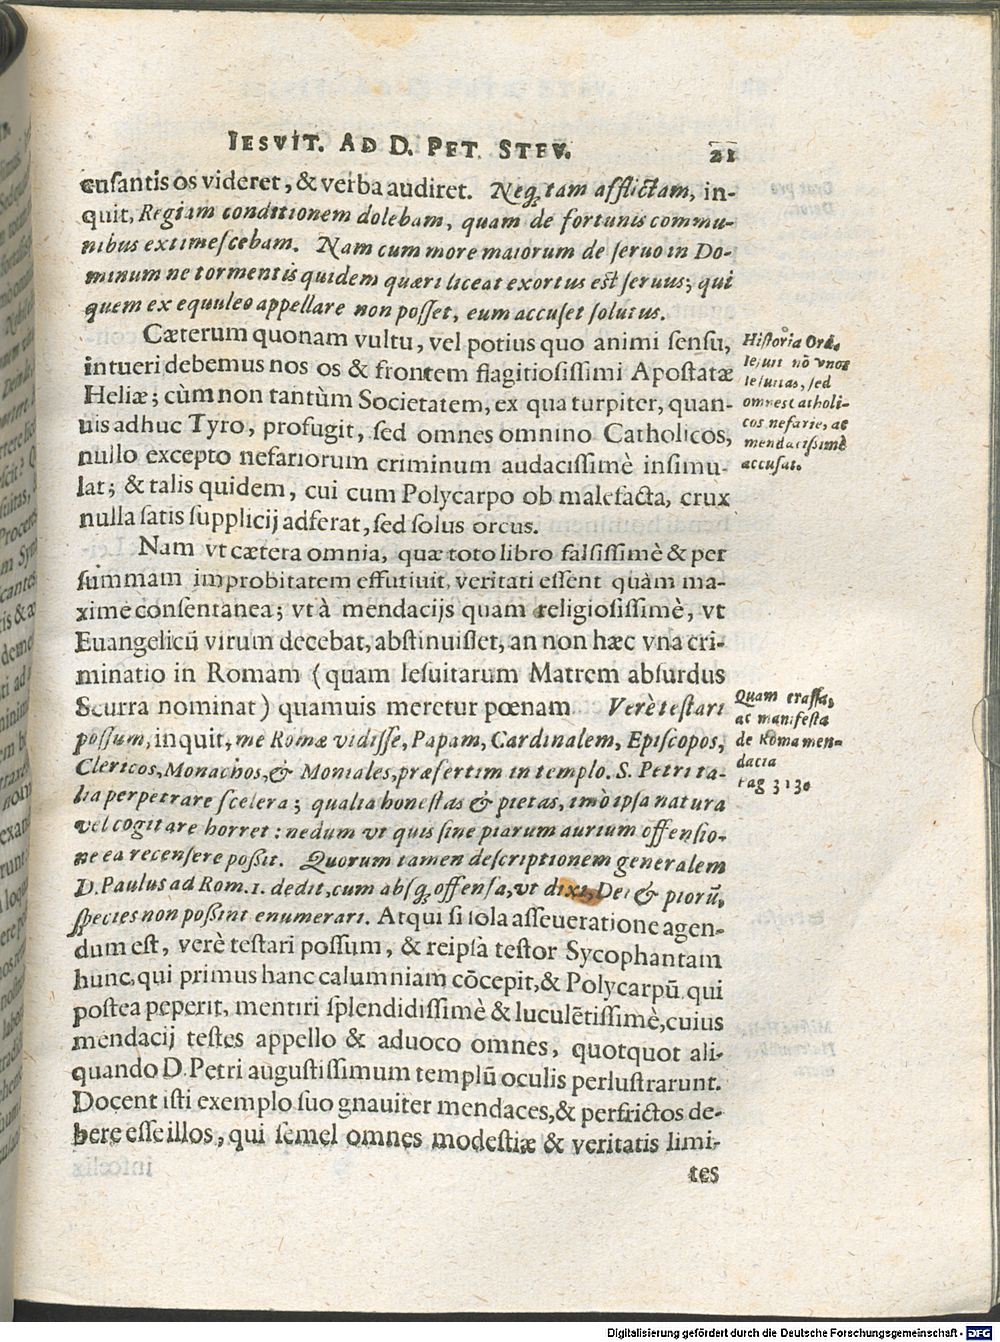 IESVIT. AD D. PET. STEV. 21
cusantis os videret, & verba audiret. Neq; tam afflictam, in-
quit, Regiam conditionem dolebam, quam de fortunis commu-
nibus extimescebam. Nam cum more maiorum de seruo in Do-
minum ne tormentis quidem quæri liceat exortus est seruus; qui
quem ex equuleo appellare non posset, eum accuset solutus.
Cæterum quonam vultu, vel potius quo animi sensu,
intueri debemus nos os & frontem flagitiosissimi Apostatæ
Heliæ; cùm non tantùm Societatem, ex qua turpiter, quan-
uis adhuc Tyro, profugit, sed omnes omnino Catholicos,
nullo excepto nefariorum criminum audacissimè insimu-
lat; & talis quidem, cui cum Polycarpo ob malefacta, crux
nulla satis supplicij adferat, sed solus orcus.
Historia Ord.
Iesuit nō vnos
Iesuitas, sed
omnes catholi-
cos nefarie, ac
mendacissimè
accusat.
Nam vt cætera omnia, quæ toto libro falsissimè & per
summam improbitatem effutiuit, veritati essent quàm ma-
ximè consentanea; vt à mendacijs quam religiosissimè, vt
Euangelicū virum decebat, abstinuisset, an non hæc vna cri-
minatio in Romam (quam Iesuitarum Matrem absurdus
Scurra nominat) quamuis meretur pœnam Verè testari
possum, inquit, me Romæ vidisse, Papam, Cardinalem, Episcopos,
Clericos, Monachos, & Moniales, præsertim in templo. S. Petri ta-
lia perpetrare scelera; qualia honestas & pietas, imò ipsa natura
vel cogitare horret: nedum vt quis sine piarum aurium offensio-
ne ea recensere poßit. Quorum tamen descriptionem generalem
D. Paulus ad Rom. 1. dedit, cum absq; offensa, vt dixi, Dei & piorū,
species non poßint enumerari. Atqui si sola asseueratione agen-
dum est, verè testari possum, & reipsà testor Sycophantam
hunc, qui primus hanc calumniam cōcepit, & Polycarpū qui
postea peperit, mentiri splendidissimè & luculētissimè, cuius
mendacij testes appello & aduoco omnes, quotquot ali-
quando D. Petri augustissimum templū oculis perlustrarunt.
Docent isti exemplo suo gnauiter mendaces, & perfrictos de-
bere esse illos, qui semel omnes modestiæ & veritatis limi-
Quam crassa,
ac manifesta
de Roma men-
dacia
Pag 3130
tes
Digitalisierung gefördert durch die Deutsche Forschungsgemeinschaft - DFG